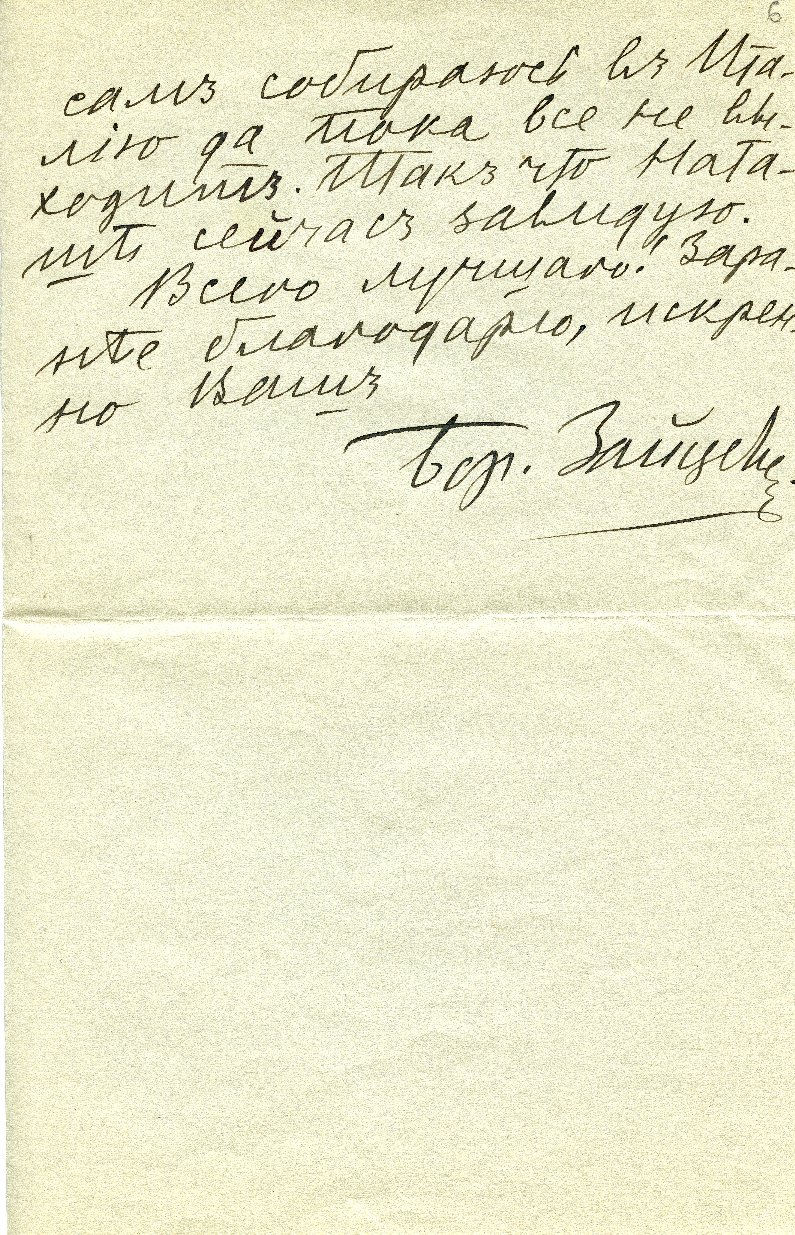 6
самъ собираюсь въ Ита-
лію да пока все не вы-
ходитъ. Такъ что Ната-
шѣ сейчасъ завидую.
Всего лучшаго! Зара-
нѣе благодарю, искрен-
но Вашъ
Бор. Зайцевъ.